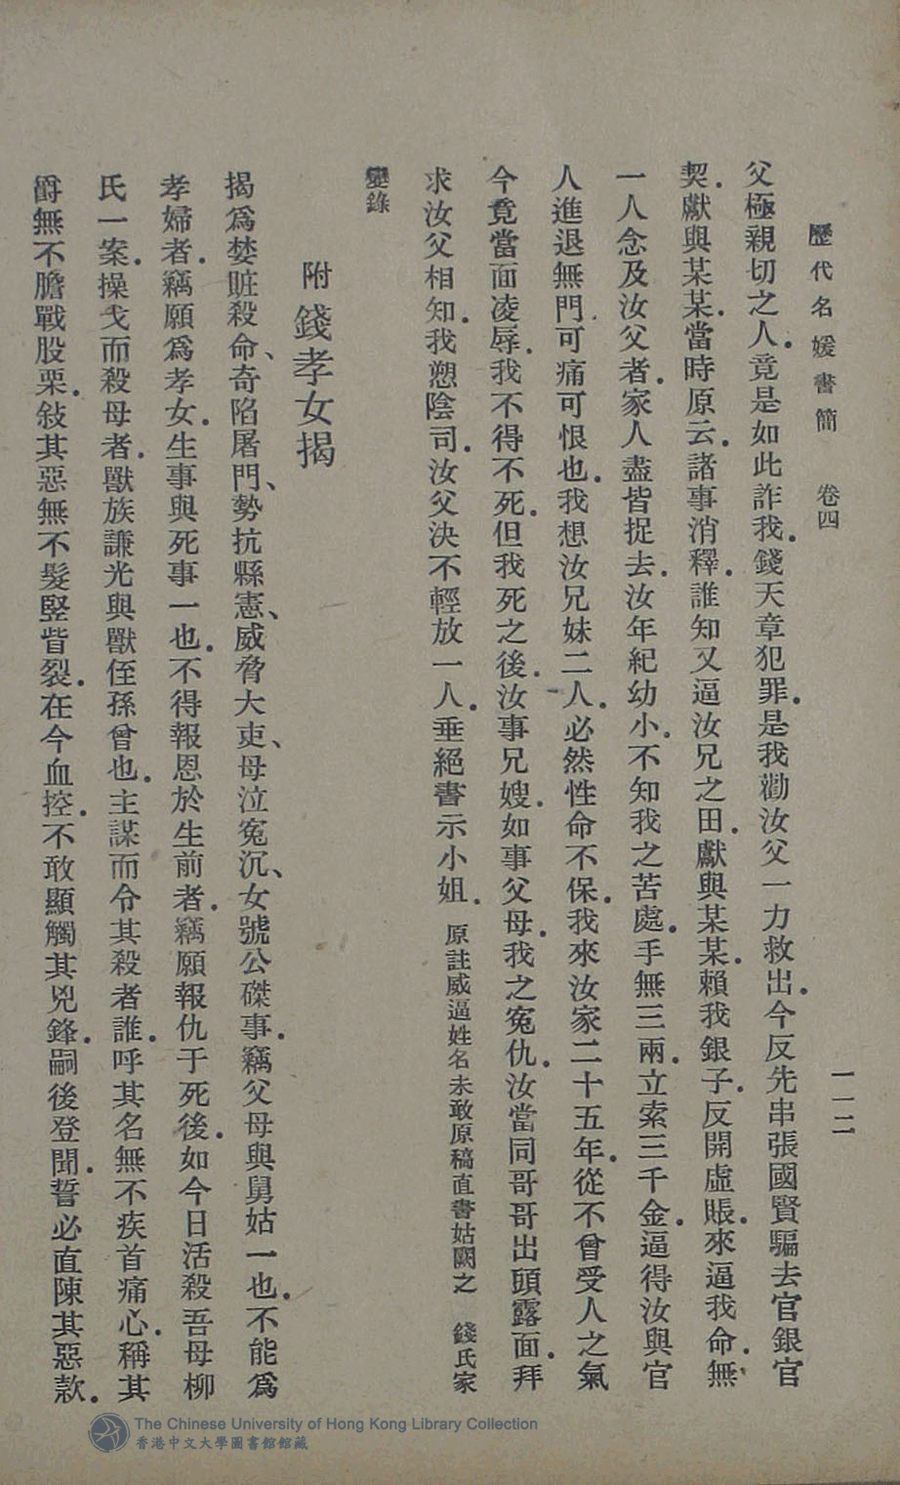 歷代名媛書簡 卷四 一一二
父極親切之人。竟是如此詐我。錢天章犯罪。是我勸汝父一力救出。今反先串張國賢騙去官銀官
契。獻與某某。當時原云。諸事消釋。誰知又逼汝兄之田。獻與某某。賴我銀子。反開虛賬。來逼我命。無
一人念及汝父者。家人盡皆捉去。汝年紀幼小。不知我之苦處。手無三兩。立索三千金。逼得汝與官
人進退無門。可痛可恨也。我想汝兄妹二人。必然性命不保。我來汝家二十五年。從不曾受人之氣
今竟當面凌辱。我不得不死。但我死之後。汝事兄嫂。如事父母。我之冤仇。汝當同哥哥出頭露面。拜
求汝父相知。我愬陰司。汝父決不輕放一人。垂絕書示小姐。原註威逼姓名未敢原稿直書姑闕之 錢氏家
變錄
附錢孝女揭
揭爲婪賍殺命、奇陷屠門、勢抗縣憲、威脅大吏、母泣冤沉、女號公磔事。竊父母與舅姑一也。不能爲
孝婦者。竊願爲孝女。生事與死事一也。不得報恩於生前者。竊願報仇于死後。如今日活殺吾母柳
氏一案。操戈而殺母者。獸族謙光與獸侄孫曾也。主謀而令其殺者誰。呼其名無不疾首痛心。稱其
爵無不膽戰股栗。敍其惡無不髮竪眥裂。在今血控。不敢顯觸其兇鋒。嗣後登聞。誓必直陳其惡款。
The Chinese University of Hong Kong Library Collection
香港中文大學圖書館館藏